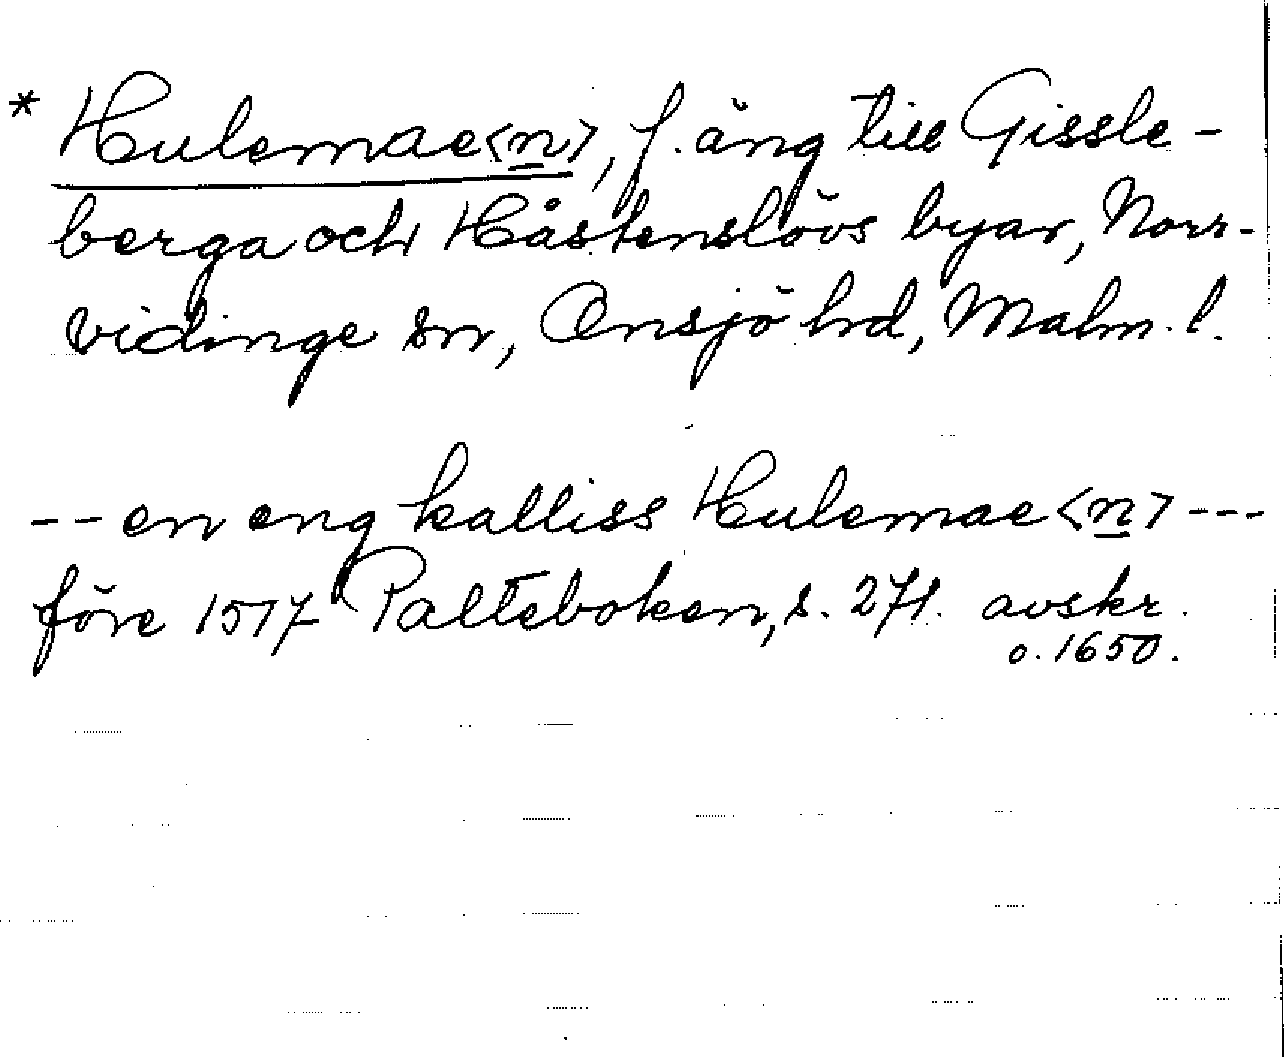 * Hulemae<n>, f. äng till Gissle-
berga och Håstenslövs byar, Norr-
vidinge sn, Onsjö hd, Malm. l.
-- en eng kalliss Hulemae<n> ---
före 1517 Palteboken, s. 271. avskr.
o. 1650.